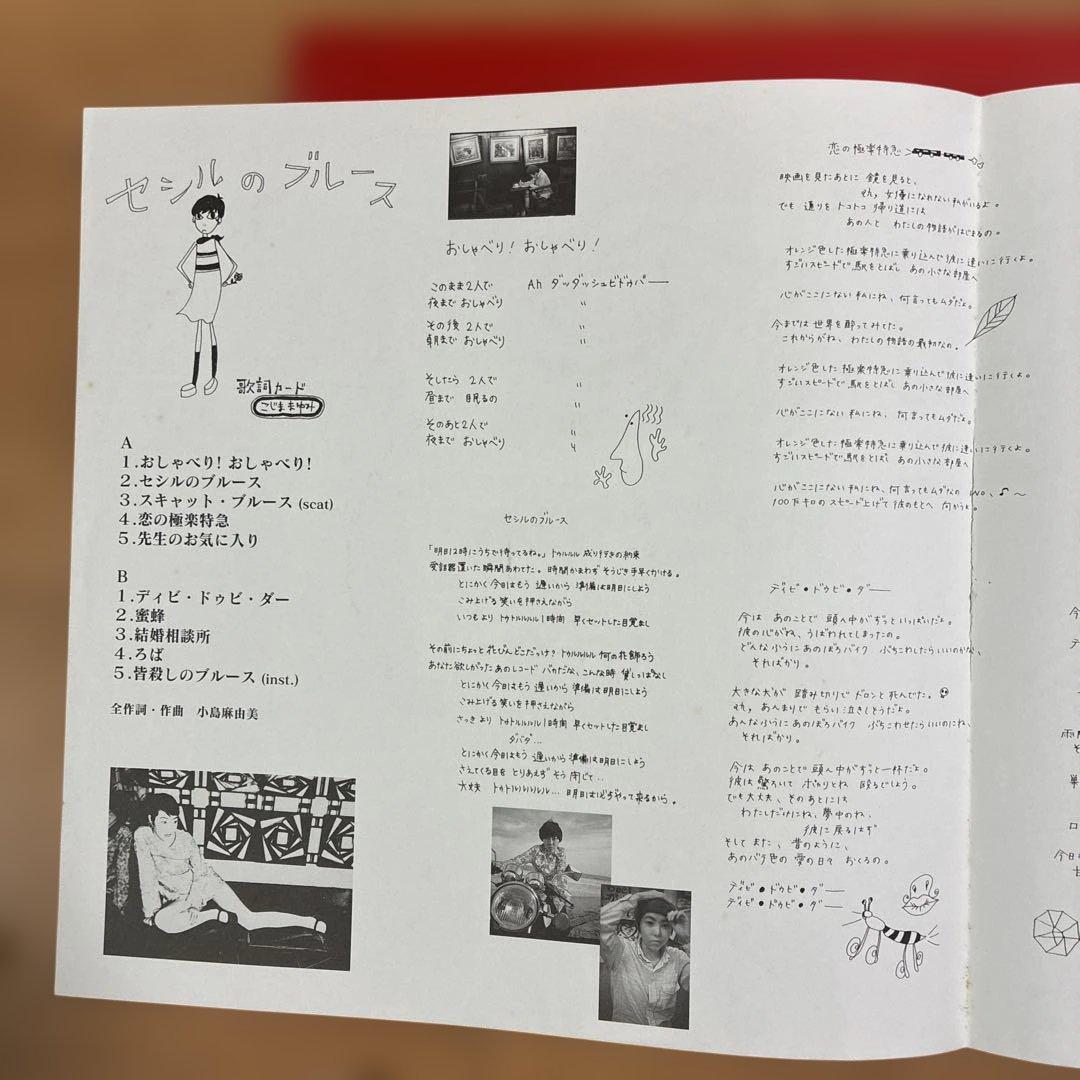 セシルのブルース
歌詞カード
こじままゆみ
A
1.おしゃべり! おしゃべり!
2.セシルのブルース
3.スキャット・ブルース (scat)
4.恋の極楽特急
5.先生のお気に入り
B
1.ディビ・ドゥビ・ダー
2.蜜蜂
3.結婚相談所
4.ろば
5.皆殺しのブルース (inst.)
全作詞・作曲 小島麻由美
おしゃべり! おしゃべり!
このまま2人で Ah ダッダッシュビドゥバー
夜まで おしゃべり 〃
その後 2人で 〃
朝まで おしゃべり 〃
そしたら 2人で 〃
昼まで 眠るの 〃
そのあと2人で 〃
夜まで おしゃべり 〃
セシルのブルース
「明日12時にうちで待ってるね。」トゥルルルル 成り行きの約束
受話器置いた瞬間あわてた。時間かまわず そうじき手早くかける。
とにかく今日はもう 遅いから 準備は明日にしよう
こみ上げる 笑いを押さえながら
いつもより トゥトゥルルルル1時間 早くセットした目覚まし
その前にちょっと 花びんどこだっけ? トゥルルルル 何の花飾ろう
あなた欲しがった あのレコード バカだな、こんな時 貸しっぱなし
とにかく今日はもう 遅いから 準備は明日にしよう
こみ上げる 笑いを押さえながら
さっきより トゥトゥルルルル1時間 早くセットした目覚まし
ダバダ...
とにかく今日はもう 遅いから 準備は明日にしよう
さえてくる目を とりあえず そう 閉じて...
大丈夫 トゥルトゥルルルルル... 明日は必ずやって来るから。
恋の極楽特急
映画を見たあとに 鏡を見ると、
oh, 女優になれない私がいるよ。
でも 通りを トコトコ 帰り道には
あの人と わたしの物語がはじまるの。
オレンジ色した極楽特急に乗り込んで彼に逢いに行くよ。
すごいスピードで駅をとばし あの小さな部屋へ
心がここにない私にね、何言ってもムダだよ。
今までは 世界を 酔ってみてた。
これからがね、わたしの物語の最初なの。
オレンジ色した 極楽特急に乗り込んで彼に逢いに行くよ。
すごいスピードで駅をとばし あの小さな部屋へ
心がここにない 私にね、何言ってもムダだよ。
オレンジ色した極楽特急に乗り込んで彼に逢いに行くよ。
すごいスピードで駅をとばし あの小さな部屋へ
心がここにない私にね、何言ってもムダなの wo、♪〜
100万キロのスピード上げて 彼のもとへ 向かうよ。
ディビ・ドゥビ・ダー
今は あのことで 頭ん中がずっといっぱいだよ。
彼の心がね、うばわれてしまったの。
どんなふうに あのぼろバイク ぶちこわしたらいいのかな、
そればかり。
大きな犬が 踏み切りで ドロンと死んでた。
oh, あんまりで もらい泣きしそうだよ。
あんなふうに あのぼろバイク ぶちこわせたらいいのにね、
そればかり。
今は あのことで 頭ん中がずっと一杯だよ。
彼は 驚ろいて ポカリとね 殴るでしょう。
でも大丈夫、そのあとには
わたしだけにね、夢中のね、
彼に戻るはず
そして また、昔のように、
あのバラ色の 愛の日々 おくるの。
ディビ・ドゥビ・ダー
ディビ・ドゥビ・ダー